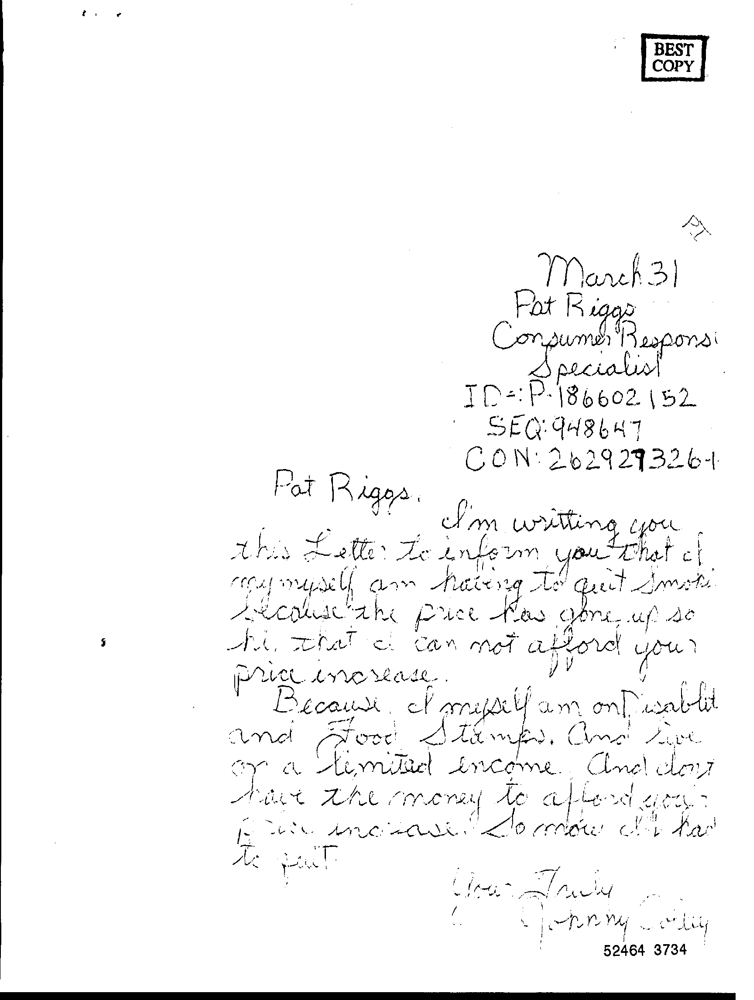 BEST
COPY
P.I.
March 31
Pat Riggs
Consumer Respons
Specialist
ID=:P-186602152
SEQ:948647
CON:2629293264
Pat Riggs,
I'm writting you
this Letter to inform you that I
myself am having to quit Smoki
because the price has gone up so
hi. that I can not afford your
price increase.
Because I myself am on Disablit
and Food Stamps. And live
on a limited income. And dont
have the money to afford your
price increase. So now I had
to quit.
Your Truly
Johnny
52464 3734